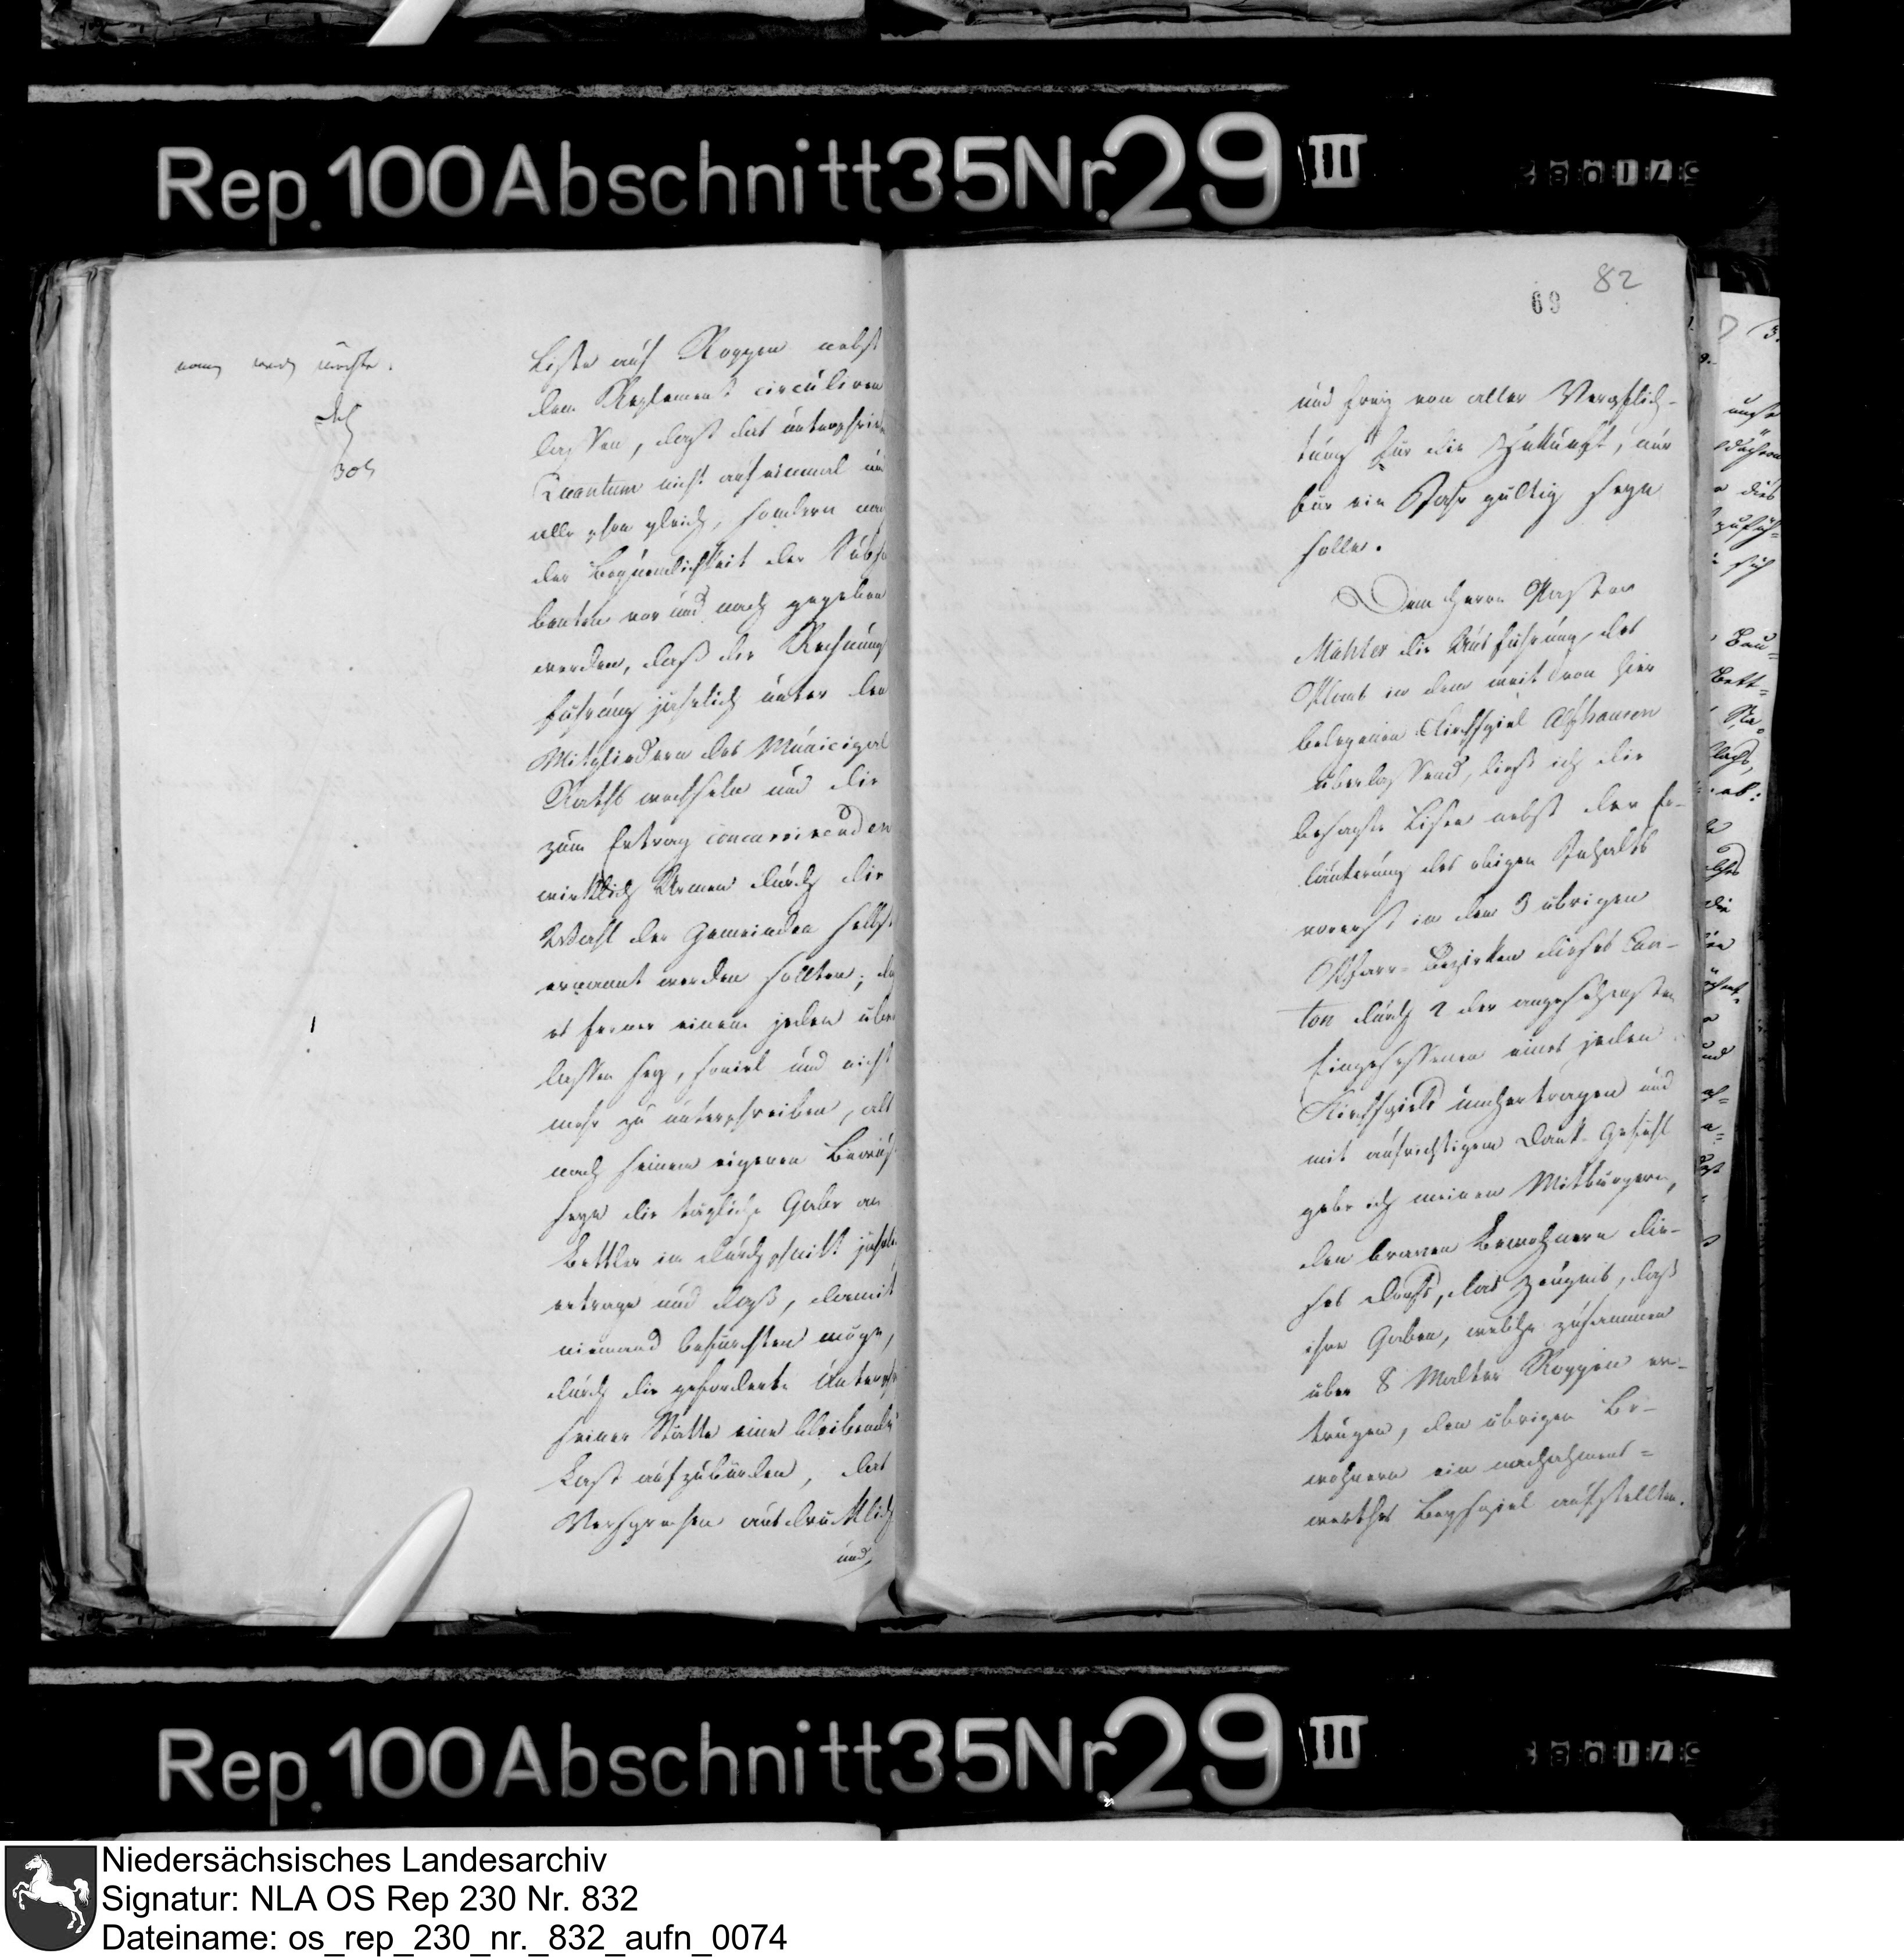 Rep. 100 Abschnitt 35 Nr. 29 III
82
69
Liste auf Roggen nebst
dem Reglement circuliren
lassen, daß das unterschrie
Quantum nicht auf einmal und
alle gleich, sondern nach
der Bequemlichkeit der Subs
benten vor und nach gegeben
werden, daß die Rechnungs
führung jährlich unter den
Mitgliedern des Municipal
Raths wechseln und die
zum Ertrag concurrirenden
wirklich Armen durch die
Wahl der Gemeinden selbst
ernannt werden sollten; daß
es ferner einem jeden über
lassen sey, soviel und nicht
mehr zu unterschreiben, als
nach seinem eigenen Bewußt
seyn die tägliche Gabe an
Bettler im durchschnitt jährlich
ertrage und daß, damit
niemand befürchten möge,
durch die geforderte Untersch
seiner Stätte eine bleibende
Last aufzubürden, das
Versprechen ausdrücklich
und
und frey von aller Verpflich-
tung für die Zukunft, nur
für ein Jahr gültig seyn
solle.
Dem Herrn Pastor
die Ausführung des
Plans in dem weit von hier
belegenen Kirchspiel Alfhausen
überlassend, ließ ich die
besagte Liste nebst der Er-
läuterung des obigen Inhalts
vorerst in den 3 übrigen
Pfarr-Bezirken dieses Can-
ton durch 2 der angesehensten
Eingesessenen eines jeden
Kirchspiels umhertragen und
mit aufrichtigem Dank-Gefühl
gebe ich meinen Mitbürgern,
den braven Bewohnern die-
ses Dorfs, das Zeugnis, daß
ihre Gaben, welche zusammen
über 8 Malter Roggen er-
trugen, den übrigen Be-
wohnern ein nachahmens=
werthes Beyspiel aufstellten.
Rep. 100 Abschnitt 35 Nr. 29 III
Niedersächsisches Landesarchiv
Signatur: NLA OS Rep 230 Nr. 832
Dateiname: os_rep_230_nr._832_aufn_0074